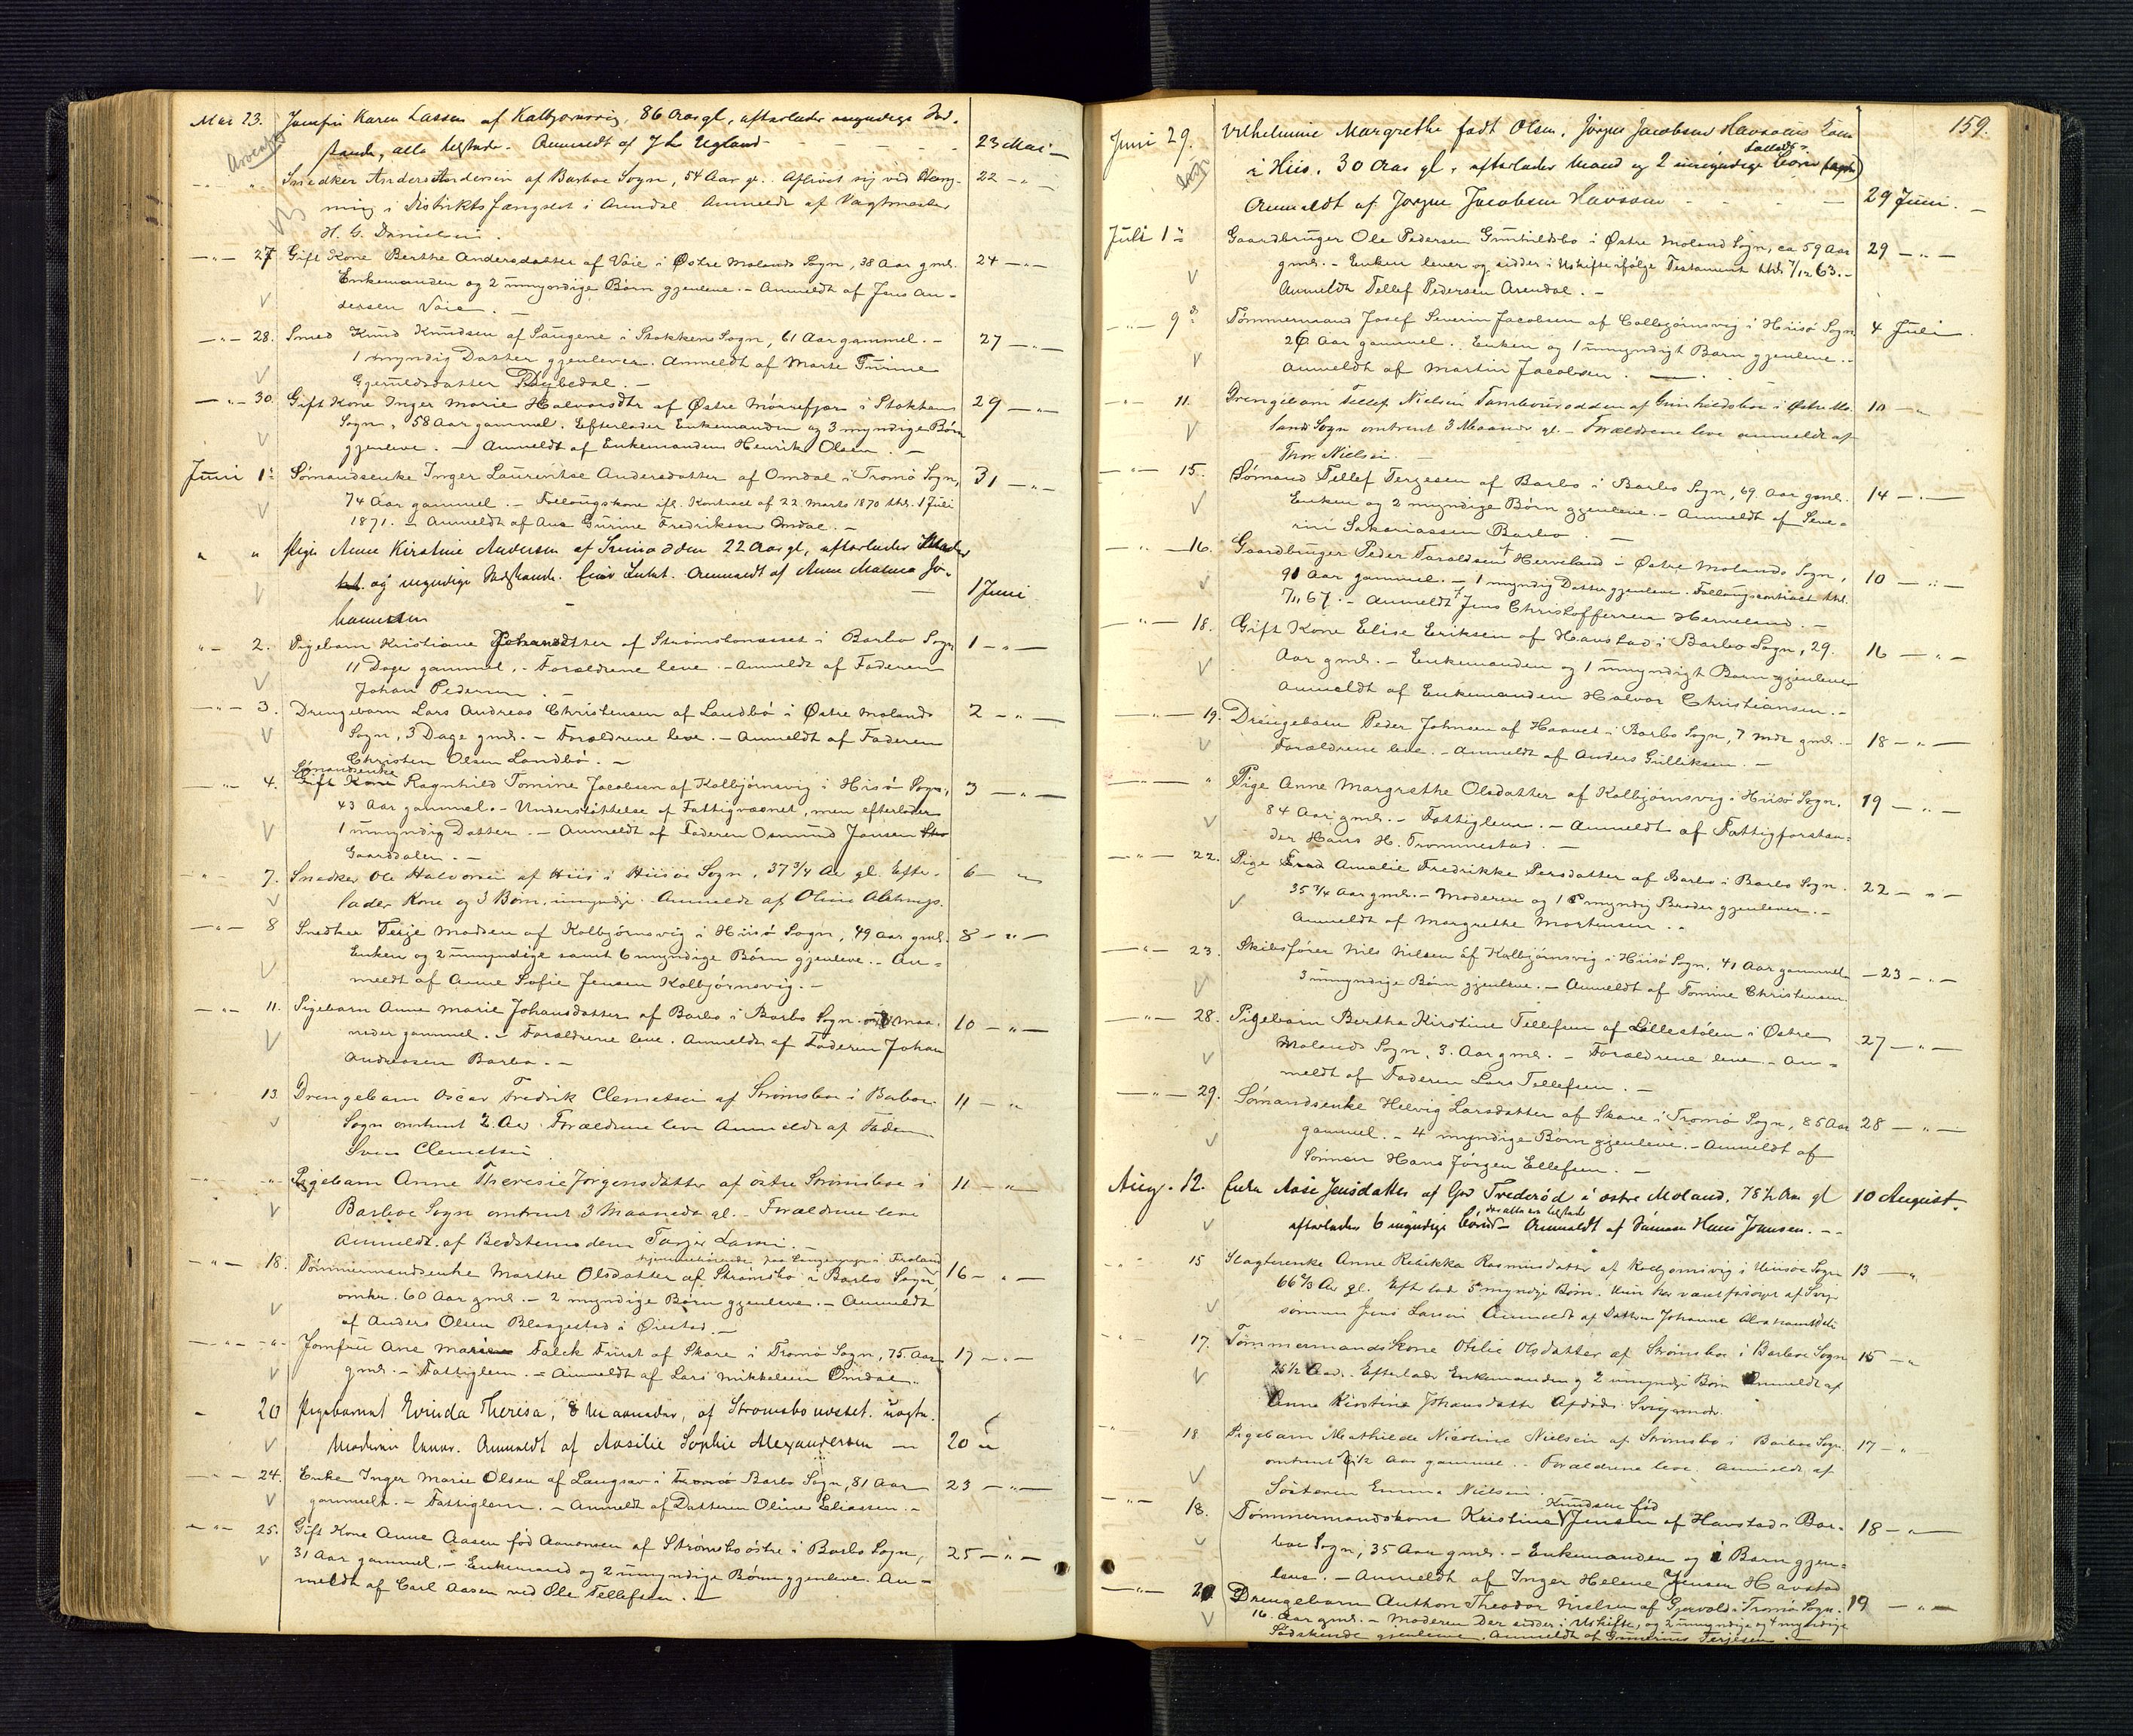 Mai 23. Jomfru Karen Lassen af Kalbjornsvig, 86 Aar gl, efterlader myndige Sød-
skende, alle tilstede. Anmeldt af J L Ugland 23 Mai
" Snedker Anders Andersen af Barboe Sogn, 54 Aar gl. Aflivet sig ved Hæng- 22 - " -
ning i Distriktsfængslet i Arendal Anmeldt af Vagtmester
H. G. Danielsen.
- " - 27 Gift Kone Berthe Andersdatter af Vaie i Østre Molands Sogn, 38 Aar gml. 24 - " -
Enkemanden og 2 umyndige Børn gjenleve. - Anmeldt af Jens An-
dersen Vaie. -
- " - 28. Smed Knud Knudsen af Saugene i Stokken Sogn, 61 Aar gammel. - 27 - " -
1 myndig Datter gjenlever. Anmeldt af Marte Turine
Gjeruldsdatter Dybedal. -
- " - 30. Gift Kone Inger Marie Halvorsdtr af Østre Mørrefjær i Stokkens 29 - " -
Sogn, 58 Aar gammel. Efterlader Enkemanden og 3 myndige Børn
gjenleve. - Anmeldt af Enkemanden Henrik Olsen. -
Juni 1. Sømandsenke Inger Lauritse Andersdatter af Omdal i Tromø Sogn, 31 - " -
74 Aar gammel. - Følougskone ifl. Kontract af 22 Marts 1870 thl. 1 Juli
1871. - Anmeldt af Ane Gurine Fredriksen Omdal. -
" " Pige Anne Kirstine Andersen af 22 Aar gl, efterlader
og myndige Sødskende. Anmeldt af Anne Malene Jo-
hannesen 1 Juni
" - 2. Pigebarn Kristiane Johansdatter af Strømsbonæsset i Barbo Sogn 1 - " -
11 Dage gammel. - Forældrene leve. - Anmeldt af Faderen
Johan Pedersen. -
- " - 3. Drengebarn Lars Andreas Christensen af Landbø i Østre Molands 2 - " -
Sogn, 3 Dage gml. - Forældrene leve. - Anmeldt af Faderen
Christen Olsen Landbø. -
Sømandsenke
- " - 4. Gift Kone Ragnhild Tomine Jacobsen af Kolbjørnsvig i Hisø Sogn, 3 - " -
43 Aar gammel. - Understøttelse af Fattigvæsnet, men efterlader
1 umyndig Datter. - Anmeldt af Faderen Osmund Jansen
Gaarddalen. -
- " 7. Snedker Ole Halvorsen af Hiis i Hiisøe Sogn, 37 3/4 Aar gl. Efter- 6 - "
lader Kone og 3 Børn, umyndige. Anmeldt af Oline Alstrup.
- " - 8 Snedker Terje Madsen af Kolbjørnsvig i Hiisø Sogn, 49 Aar gml. 8 - " -
Enken og 2 umyndige samt 6 myndige Børn gjenleve. - An-
meldt af Anne Sofie Jensen Kolbjørnsvig. -
- " - 11. Pigebarn Anne Marie Johansdatter af Barbo i Barbo Sogn Maa- 10 - " -
neder gammel. - Forældrene leve. Anmeldt af Faderen Johan
Andreasen Barbo. -
13 Drengebarn Oscar Fredrik Clemetsen af Strømsboe i Barboe 11 - "
Sogn omtrent 2 Aar. Forældrene leve Anmeldt af Faderen
Svend Clemetsen
- " - Pigebarn Anne Theresie Jørgensdatter af østre Strømsboe i 11 - "
Barboe Sogn omtrent 3 Maaneder gl. - Forældrene leve
Anmeldt af Bedstemoderen Tarjer Larsi. -
hjemmehørende paa i Froland
- " - 18. Tømmermandsenke Marthe Olsdatter af Strømsbo i Barbo Sogn, 16 - " -
omkr. 60 Aar gml. - 2 myndige Børn gjenleve. - Anmeldt
af Anders Olsen Blaagestad i Øiestad. -
- " - " - Jomfru Ane Marie Falck Fürst af Skare i Tromø Sogn, 75 Aar 17 - " -
gml. - Fattiglem. - Anmeldt af Lars Mikkelsen Omdal. -
- 20 Pigebarnet Evinda Theresa, 8 Maaneder, af Strømsbo næsset. uægte.
Moderen lever. Anmeldt af Rosilie Sophie Alexandersen 20 "
- " - 24. Enke Inger Marie Olsen af Langsæ i Tromø Barbo Sogn, 81 Aar 23 - " -
gammelt. - Fattiglem. - Anmeldt af Datteren Oline Eliassen. -
- " - 25. Gift Kone Anne Aasen fød Aanonsen af Strømsbo østre i Barbo Sogn, 25 - " -
31 Aar gammel. - Enkemand og 2 umyndige Børn gjenleve. An-
meldt af Carl Aasen ved Ole Tellefsen. -
159.
Juni 29. Vilhelmine Margrethe født Olsen, Jørgen Jacobsen Havsøens Kone
i Hiis. 30 Aar gl, efterlader Mand og 2 umyndige Børn
Anmeldt af Jørgen Jacobsen Havsøen 29 Juni -
Juli 1. Gaardbruger Ole Pedersen Gunhildsbo i Østre Moland Sogn, ca 59 Aar 29 - " -
gml. - Enken lever og sidder i Uskifte ifølge Testament thl. 7/12 63. -
Anmeldt Tellef Pedersen Arendal. -
- " - 9. Tømmermand Josef Severin Jacobsen af Colbjørnsvig i Hiisø Sogn 4 Juli
26 Aar gammel. Enken og 1 umyndigt Barn gjenleve. -
Anmeldt af Martin Jacobsen. -
- " 11. Drengebarn Tellef Nielsen Tambourodden af Gunhildsboe i Østre Mo- 10 - "
lands Sogn omtrent 3 Maaneder gl. - Forældrene leve anmeldt af
Thor Nielsen.
- " - 15. Sømand Tellef Terjesen af Barbo i Barbo Sogn, 69 Aar gml. 14 - " -
Enken og 2 myndige Børn gjenleve. - Anmeldt af Seve-
rin Sakariassen Barbo. -
- " - 16. Gaardbruger Peder Taraldsen Herveland i Østre Molands Sogn, 10 - " -
90 Aar gammel. - 1 myndig Datter gjenleve. Følougscontract thl.
7/11 67. - Anmeldt Jens Christoffersen Herveland. -
- " - 18. Gift Kone Elise Eriksen af Havstad i Barbo Sogn, 29. 16 - " -
Aar gml. - Enkemanden og 1 umyndigt Barn gjenlever
Anmeldt af Enkemanden Halvor Christiansen. -
- " - 19. Drengebarn Peder Johnsen af Haavet i Barbo Sogn, 7 Mdr gml. - 18 - " -
Forældrene leve. - Anmeldt af Anders Gulliksen. -
- " - " Pige Anne Margrethe Olsdatter af Kolbjørnsvig i Hiisø Sogn. 19 - " -
84 Aar gml. - Fattiglem. - Anmeldt af Fattigforstan-
der Hans H. Trommestad. -
- " - 22. Pige Amalie Fredrikke Persdatter af Barbo i Barbo Sogn. 22 - " -
35 3/4 Aar gml. - Moderen og 1 myndig Broder gjenlever. -
Anmeldt af Margrethe Mortensen. -
- " - 23. Skibsfører Nils Nilsen af Kolbjørnsvig i Hiisø Sogn, 41 Aar gammel - 23 - " -
3 umyndige Børn gjenleve. - Anmeldt af Tomine Christensen.
- " - 28. Pigebarn Berthe Kirstine Tellefsen af Lillestølen i Østre 27 - " -
Molands Sogn, 3. Aar gml. - Forældrene leve - An-
meldt af Faderen Lars Tellefsen. -
- " - 29. Sømandsenke Helvig Larsdatter af Skare i Tromø Sogn, 85 Aar 28 - " -
gammel. - 4 myndige Børn gjenleve. - Anmeldt af
Sønnen Hans Jørgen Ellefsen. -
Aug. 12. Enke Aase Jensdatter af Grd Trederød i østre Moland, 78 1/2 Aar gl 10 August.
efterlader 6 myndige Børn, der alle ere tilstede - Anmeldt af Sønnen Hans Jensen. -
15 Slagterenke Anne Rebekka Rasmusdatter af Kolbjørnsvig i Hiisøe Sogn 13 - "
66 2/3 Aar gl. Efterlader 5 myndige Børn. Hun har været forsørget af Svige-
sønnen Jens Larsen Anmeldt af Datteren Johanne
17. Tømmermandskone Otilie Olsdatter af Strømsboe i Barboe Sogn 15 - "
25 1/2 Aar. - Efterlader Enkemanden og 2 umyndige Børn Anmeldt af
Anna Kirstine Johansdatter Afdødes Svigermoder.
18 Pigebarn Mathilde Nicoline Nielsen af Strømsbo i Barboe Sogn 17 - "
omtrent 1/2 Aar gammel. - Forældrene leve. Anmeldt af
Søsteren Emma Nielsen.
Knudsen fød
- " - 18. Tømmermandskone Kristine Jensen af Havstad i Bar- 18 - "
boe Sogn, 35 Aar gml. - Enkemanden og 1 Barn gjen-
leve. - Anmeldt af Inger Helene Jensen Havstad
- " - 20 Drengebarn Anthon Theodor Nielsen af Gjervold i Tromø Sogn. 19 - " -
16. Aar gml. - Moderen der sidder i Uskifte, og 2 umyndige og 4 myndige
Sødskende gjenleve. Anmeldt af Gunerius Terjesen. -